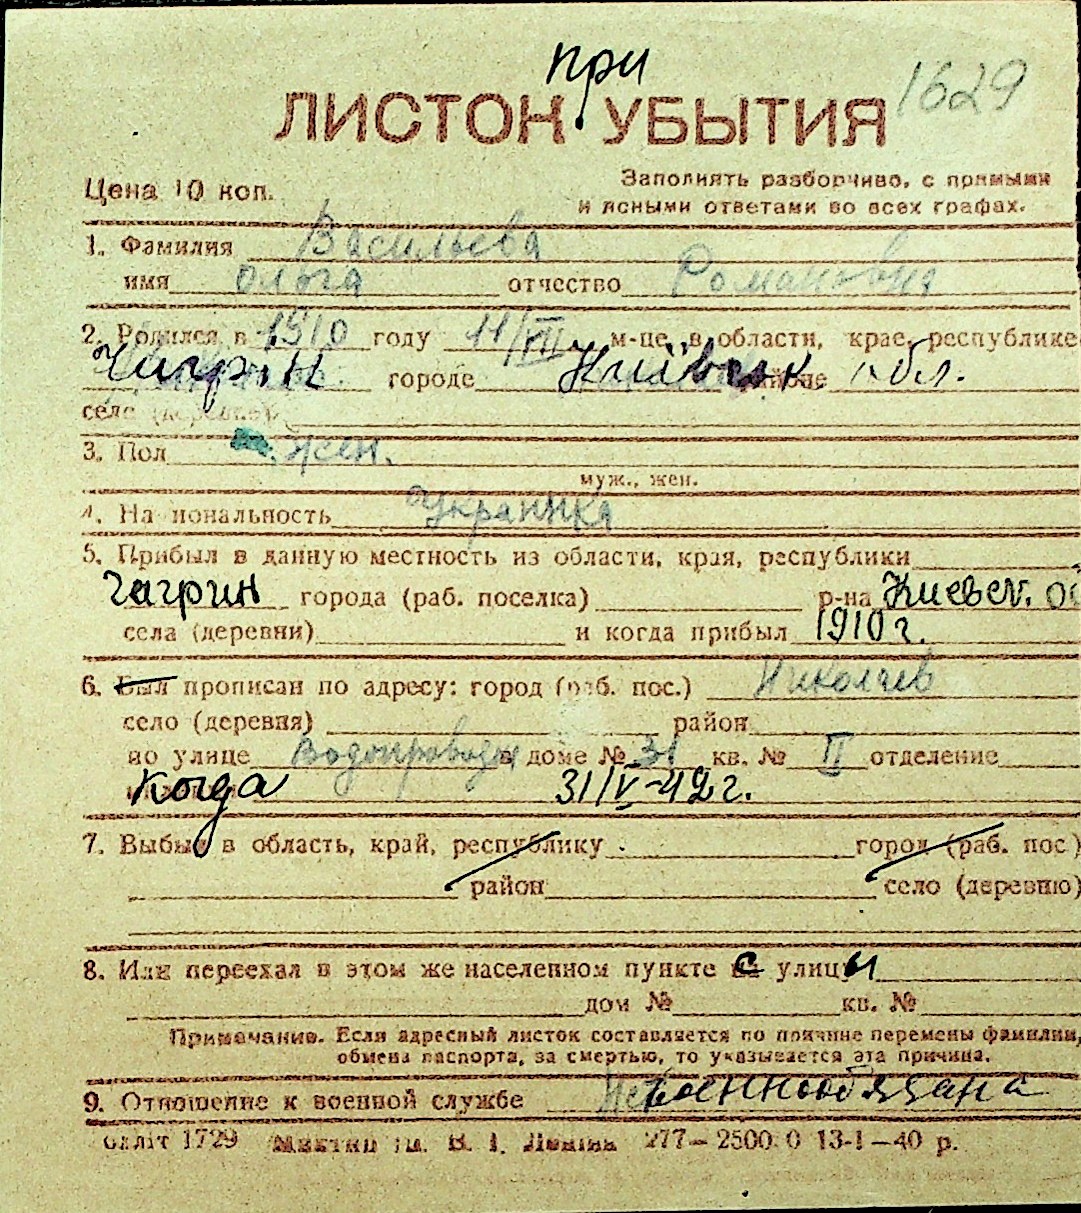 при
ЛИСТОК УБЫТИЯ 1629
Цена 10 коп.
Заполнять разборчиво, с прямыми
и ясными ответами во всех графах.
1. Фамилия Васильева
имя Ольга отчество Романовна
2. Родился в 1910 году 11/VII м-це, в области, крае, республике
Чигрін городе Київськ районе обл.
селе (деревне)
3. Пол жен.
муж., жен.
4. На иональность украинка
5. Прибыл в данную местность из области, края, республики
Чагрин города (раб. поселка) р-на Киевск. об
села (деревни) и когда прибыл 1910 г.
6. Был прописан по адресу: город (раб. пос.) Николаев
село (деревня) район
по улице Водопроводн в доме № 31 кв. № II отделение
когда 31/V-42 г.
7. Выбыл в область, край, республику город (раб. пос.)
район село (деревню)
8. Или переехал в этом же населенном пункте с улицы
дом № кв. №
Примечание. Если адресный листок составляется по причине перемены фамилии,
обмена паспорта, за смертью, то указывается эта причина.
9. Отношение к военной службе Невоеннообязана
блліт 1729 ім. В. І. Леніна 277—2500 0 13-І—40 р.